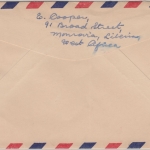 E. Cooper,
91 Broad Street,
Monrovia, Liberia,
West Africa